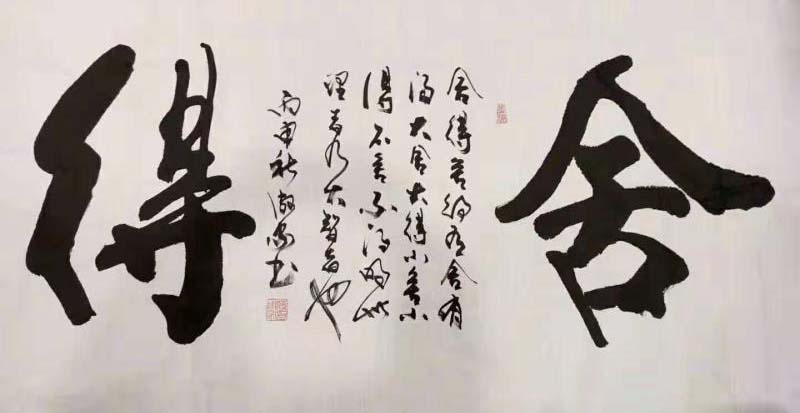 舍
舍得舍得有舍有
得大舍大得小舍小
得不舍不得明此
理者乃大智者也
丙申秋书
得